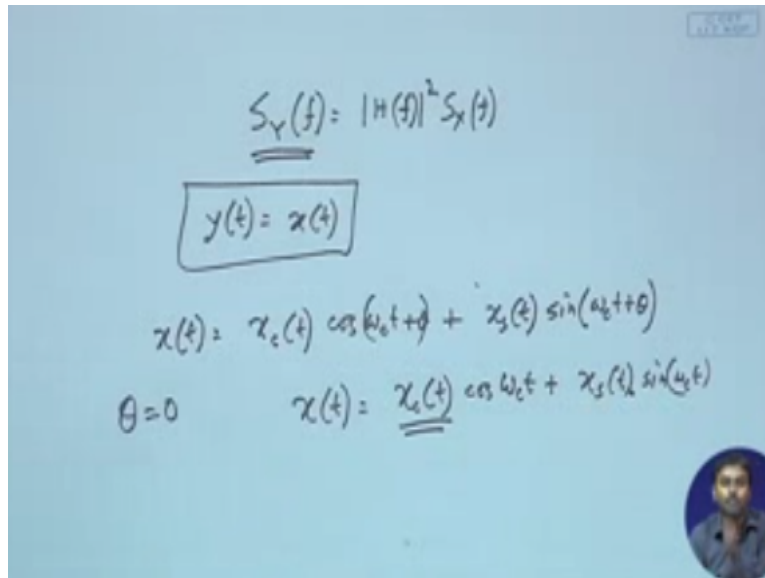 S_Y(f) = |H(f)|² S_X(f)
y(t) = x(t)
x(t) = x_c(t) cos(ω_c t + θ) + x_s(t) sin(ω_c t + θ)
θ = 0 x(t) = x_c(t) cos ω_c t + x_s(t) sin(ω_c t)